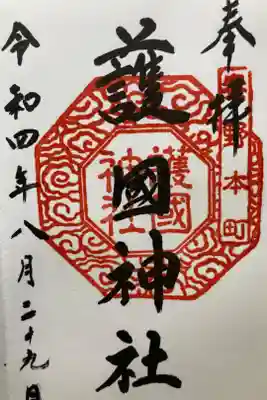 奉拝
本町
護國神社
護國
神社
令和四年八月二十九日